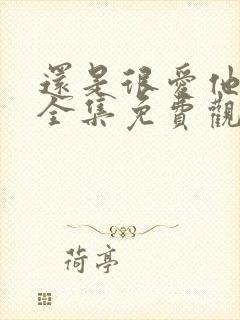 還是很愛他
全集免費觀
荷亭